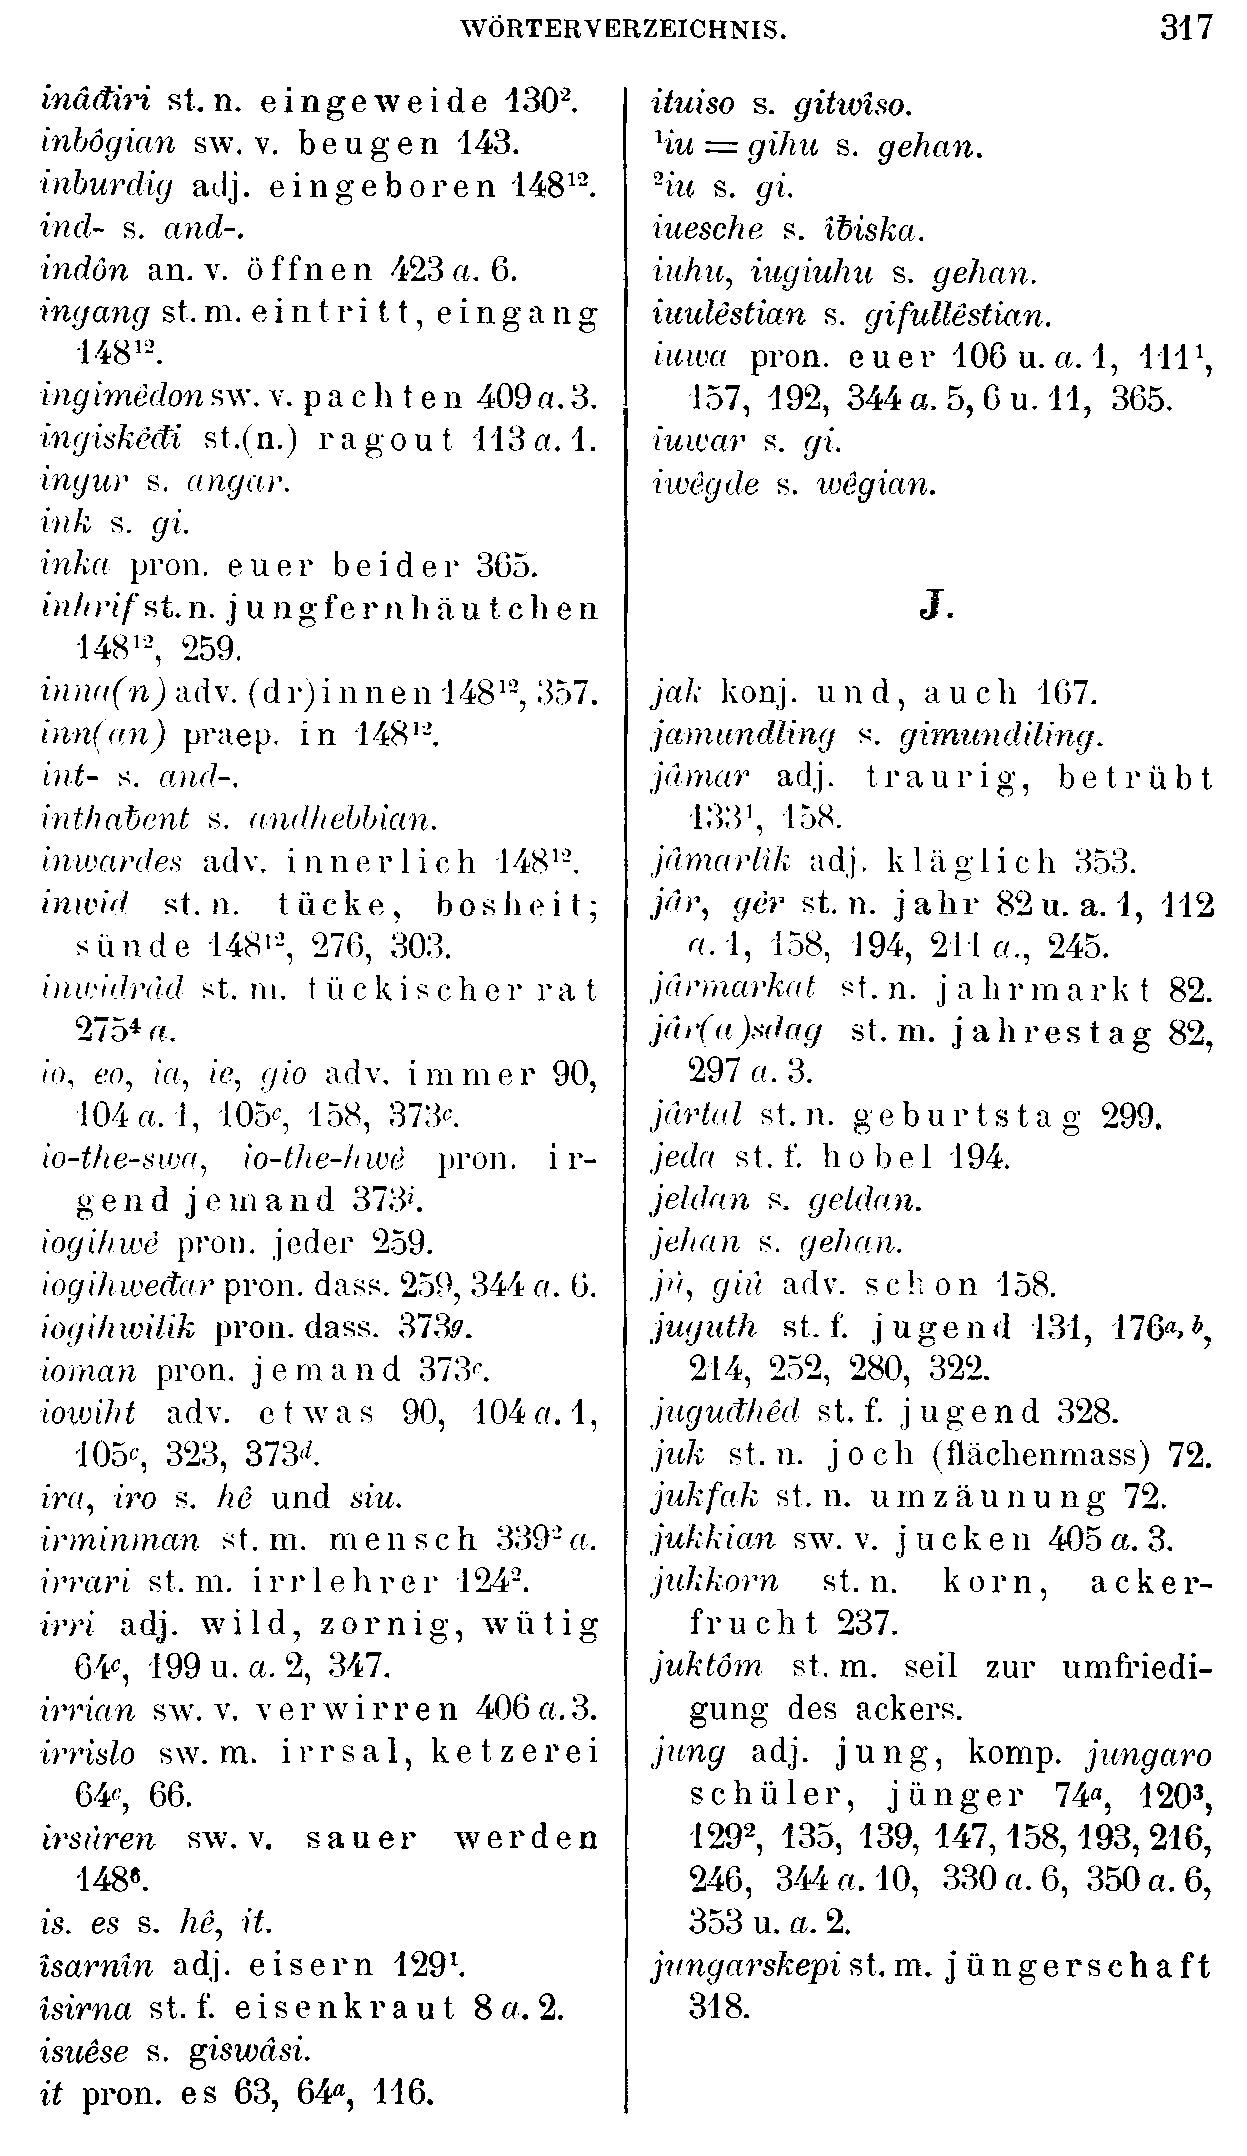 WÖRTERVERZEICHNIS. 317
inâđiri st. n. eingeweide 130².
inbôgian sw. v. beugen 143.
inburdig adj. eingeboren 148¹².
ind- s. and-.
indôn an. v. öffnen 423 a. 6.
ingang st. m. eintritt, eingang
148¹².
ingimêdon sw. v. pachten 409 a. 3.
ingiskêđi st.(n.) ragout 113 a. 1.
ingur s. angar.
ink s. gi.
inka pron. euer beider 365.
inhrif st. n. jungfernhäutchen
148¹², 259.
inna(n) adv. (dr)innen 148¹², 357.
inn(an) praep. in 148¹².
int- s. and-.
inthaƀent s. andhebbian.
inwardes adv. innerlich 148¹².
inwid st. n. tücke, bosheit;
sünde 148¹², 276, 303.
inwidrâd st. m. tückischer rat
275⁴ a.
io, eo, ia, ie, gio adv. immer 90,
104 a. 1, 105ᶜ, 158, 373ᶜ.
io-the-swa, io-the-hwê pron. ir-
gend jemand 373ⁱ.
iogihwê pron. jeder 259.
iogihweđar pron. dass. 259, 344 a. 6.
iogihwilik pron. dass. 373ᵍ.
ioman pron. jemand 373ᶜ.
iowiht adv. etwas 90, 104 a. 1,
105ᶜ, 323, 373ᵈ.
ira, iro s. hê und siu.
irminman st. m. mensch 339² a.
irrari st. m. irrlehrer 124².
irri adj. wild, zornig, wütig
64ᶜ, 199 u. a. 2, 347.
irrian sw. v. verwirren 406 a. 3.
irrislo sw. m. irrsal, ketzerei
64ᶜ, 66.
irsûren sw. v. sauer werden
148⁶.
is. es s. hê, it.
îsarnîn adj. eisern 129¹.
îsirna st. f. eisenkraut 8 a. 2.
isuêse s. giswâsi.
it pron. es 63, 64ᵃ, 116.
ituiso s. gitwîso.
¹iu = gihu s. gehan.
²iu s. gi.
iuesche s. îƀiska.
iuhu, iugiuhu s. gehan.
iuulêstian s. gifullêstian.
iuwa pron. euer 106 u. a. 1, 111¹,
157, 192, 344 a. 5, 6 u. 11, 365.
iuwar s. gi.
iwêgde s. wêgian.
J.
jak konj. und, auch 167.
jamundling s. gimundiling.
jâmar adj. traurig, betrübt
133¹, 158.
jâmarlîk adj. kläglich 353.
jâr, gêr st. n. jahr 82 u. a. 1, 112
a. 1, 158, 194, 211 a., 245.
jârmarkat st. n. jahrmarkt 82.
jâr(a)sdag st. m. jahrestag 82,
297 a. 3.
jârtal st. n. geburtstag 299.
jeda st. f. hobel 194.
jeldan s. geldan.
jehan s. gehan.
jû, giû adv. schon 158.
juguth st. f. jugend 131, 176ᵃ, ᵇ,
214, 252, 280, 322.
juguđhêd st. f. jugend 328.
juk st. n. joch (flächenmass) 72.
jukfak st. n. umzäunung 72.
jukkian sw. v. jucken 405 a. 3.
jukkorn st. n. korn, acker-
frucht 237.
juktôm st. m. seil zur umfriedi-
gung des ackers.
jung adj. jung, komp. jungaro
schüler, jünger 74ᵃ, 120³,
129², 135, 139, 147, 158, 193, 216,
246, 344 a. 10, 330 a. 6, 350 a. 6,
353 u. a. 2.
jungarskepi st. m. jüngerschaft
318.